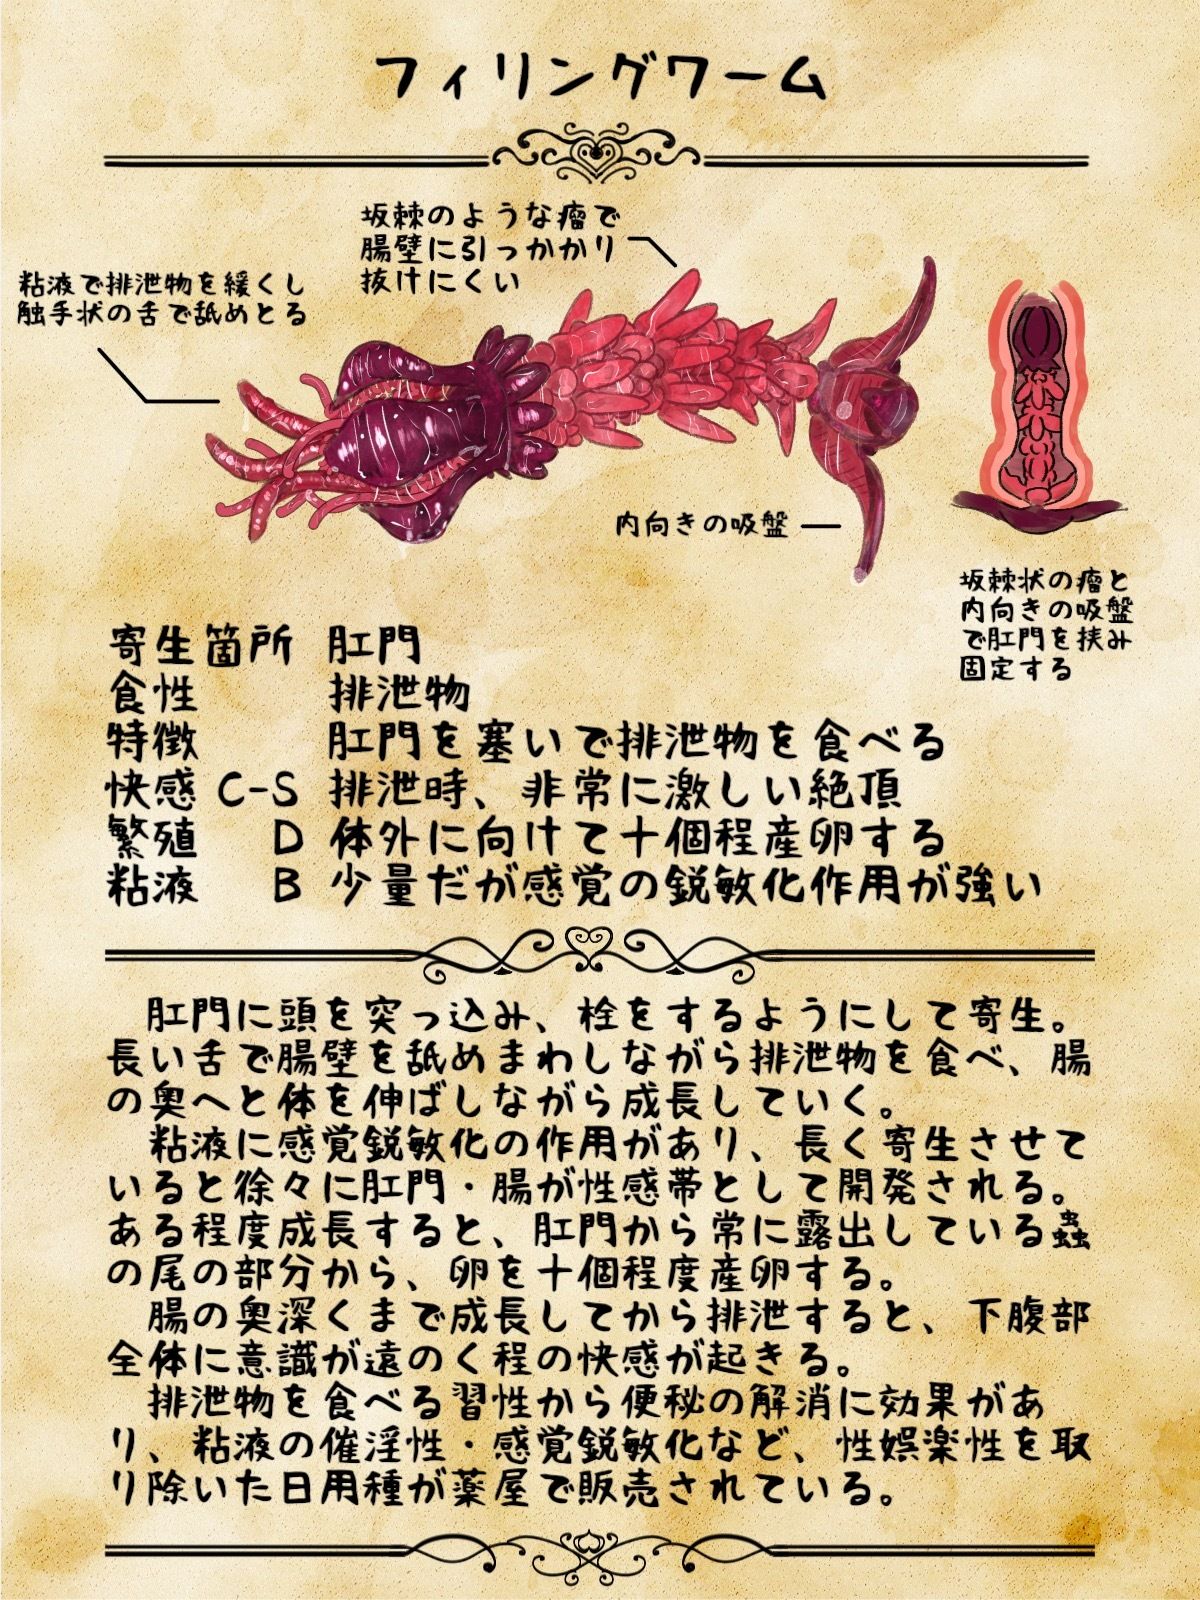 フィリングワーム
坂棘のような瘤で
腸壁に引っかかり
抜けにくい
粘液で排泄物を緩くし
触手状の舌で舐めとる
内向きの吸盤
坂棘状の瘤と
内向きの吸盤
で肛門を挟み
固定する
寄生箇所 肛門
食性 排泄物
特徴 肛門を塞いで排泄物を食べる
快感 C-S 排泄時、非常に激しい絶頂
繁殖 D 体外に向けて十個程産卵する
粘液 B 少量だが感覚の鋭敏化作用が強い
肛門に頭を突っ込み、栓をするようにして寄生。
長い舌で腸壁を舐めまわしながら排泄物を食べ、腸
の奥へと体を伸ばしながら成長していく。
粘液に感覚鋭敏化の作用があり、長く寄生させて
いると徐々に肛門・腸が性感帯として開発される。
ある程度成長すると、肛門から常に露出している蟲
の尾の部分から、卵を十個程度産卵する。
腸の奥深くまで成長してから排泄すると、下腹部
全体に意識が遠のく程の快感が起きる。
排泄物を食べる習性から便秘の解消に効果があ
り、粘液の催淫性・感覚鋭敏化など、性娯楽性を取
り除いた日用種が薬屋で販売されている。